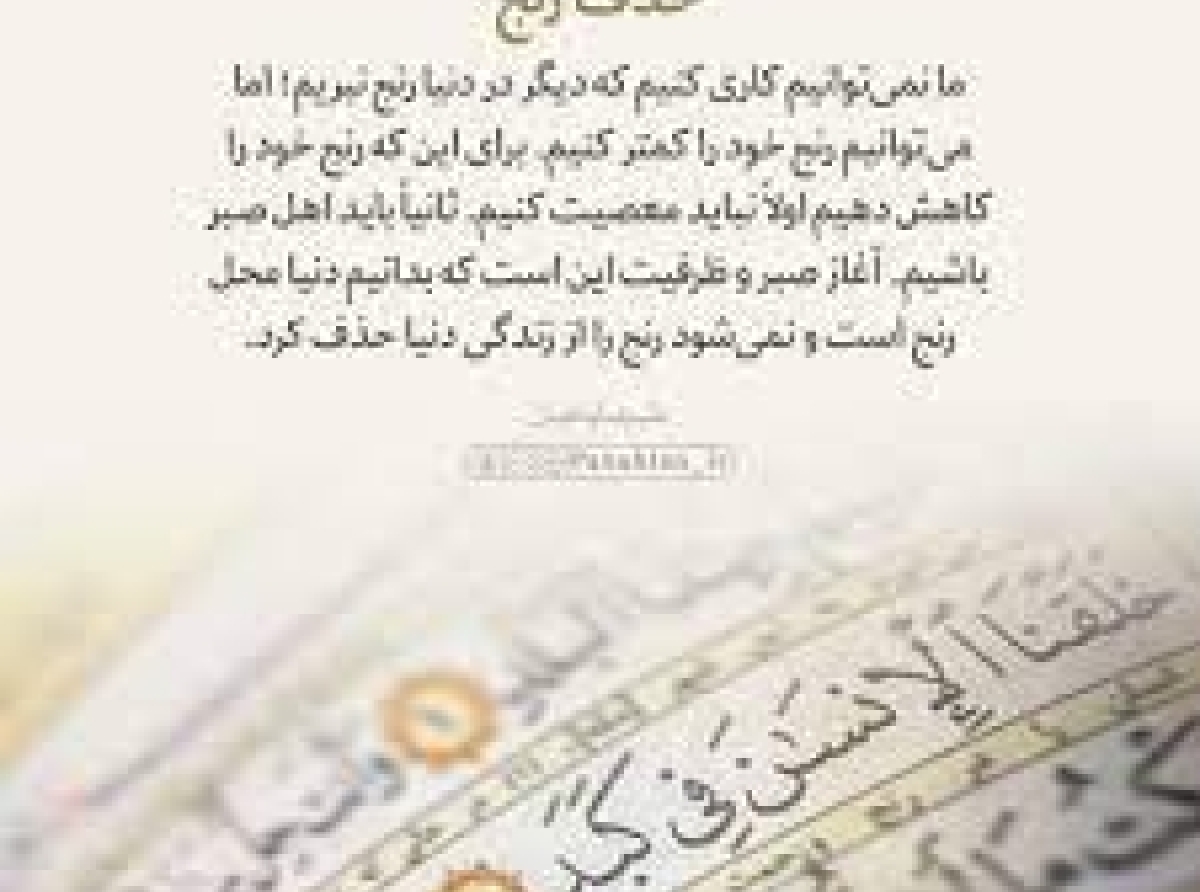 حذف رنج
ما نمی‌توانیم کاری کنیم که دیگر در دنیا رنج نبریم؛ اما
می‌توانیم رنج خود را کمتر کنیم. برای این که رنج خود را
کاهش دهیم اولاً نباید معصیت کنیم. ثانیاً باید اهل صبر
باشیم. آغاز صبر و ظرفیت این است که بدانیم دنیا محل
رنج است و نمی‌شود رنج را از زندگی دنیا حذف کرد.
Panahian_ir
خَلَقْنَا ٱلْإِنسَٰنَ فِى كَبَدٍ